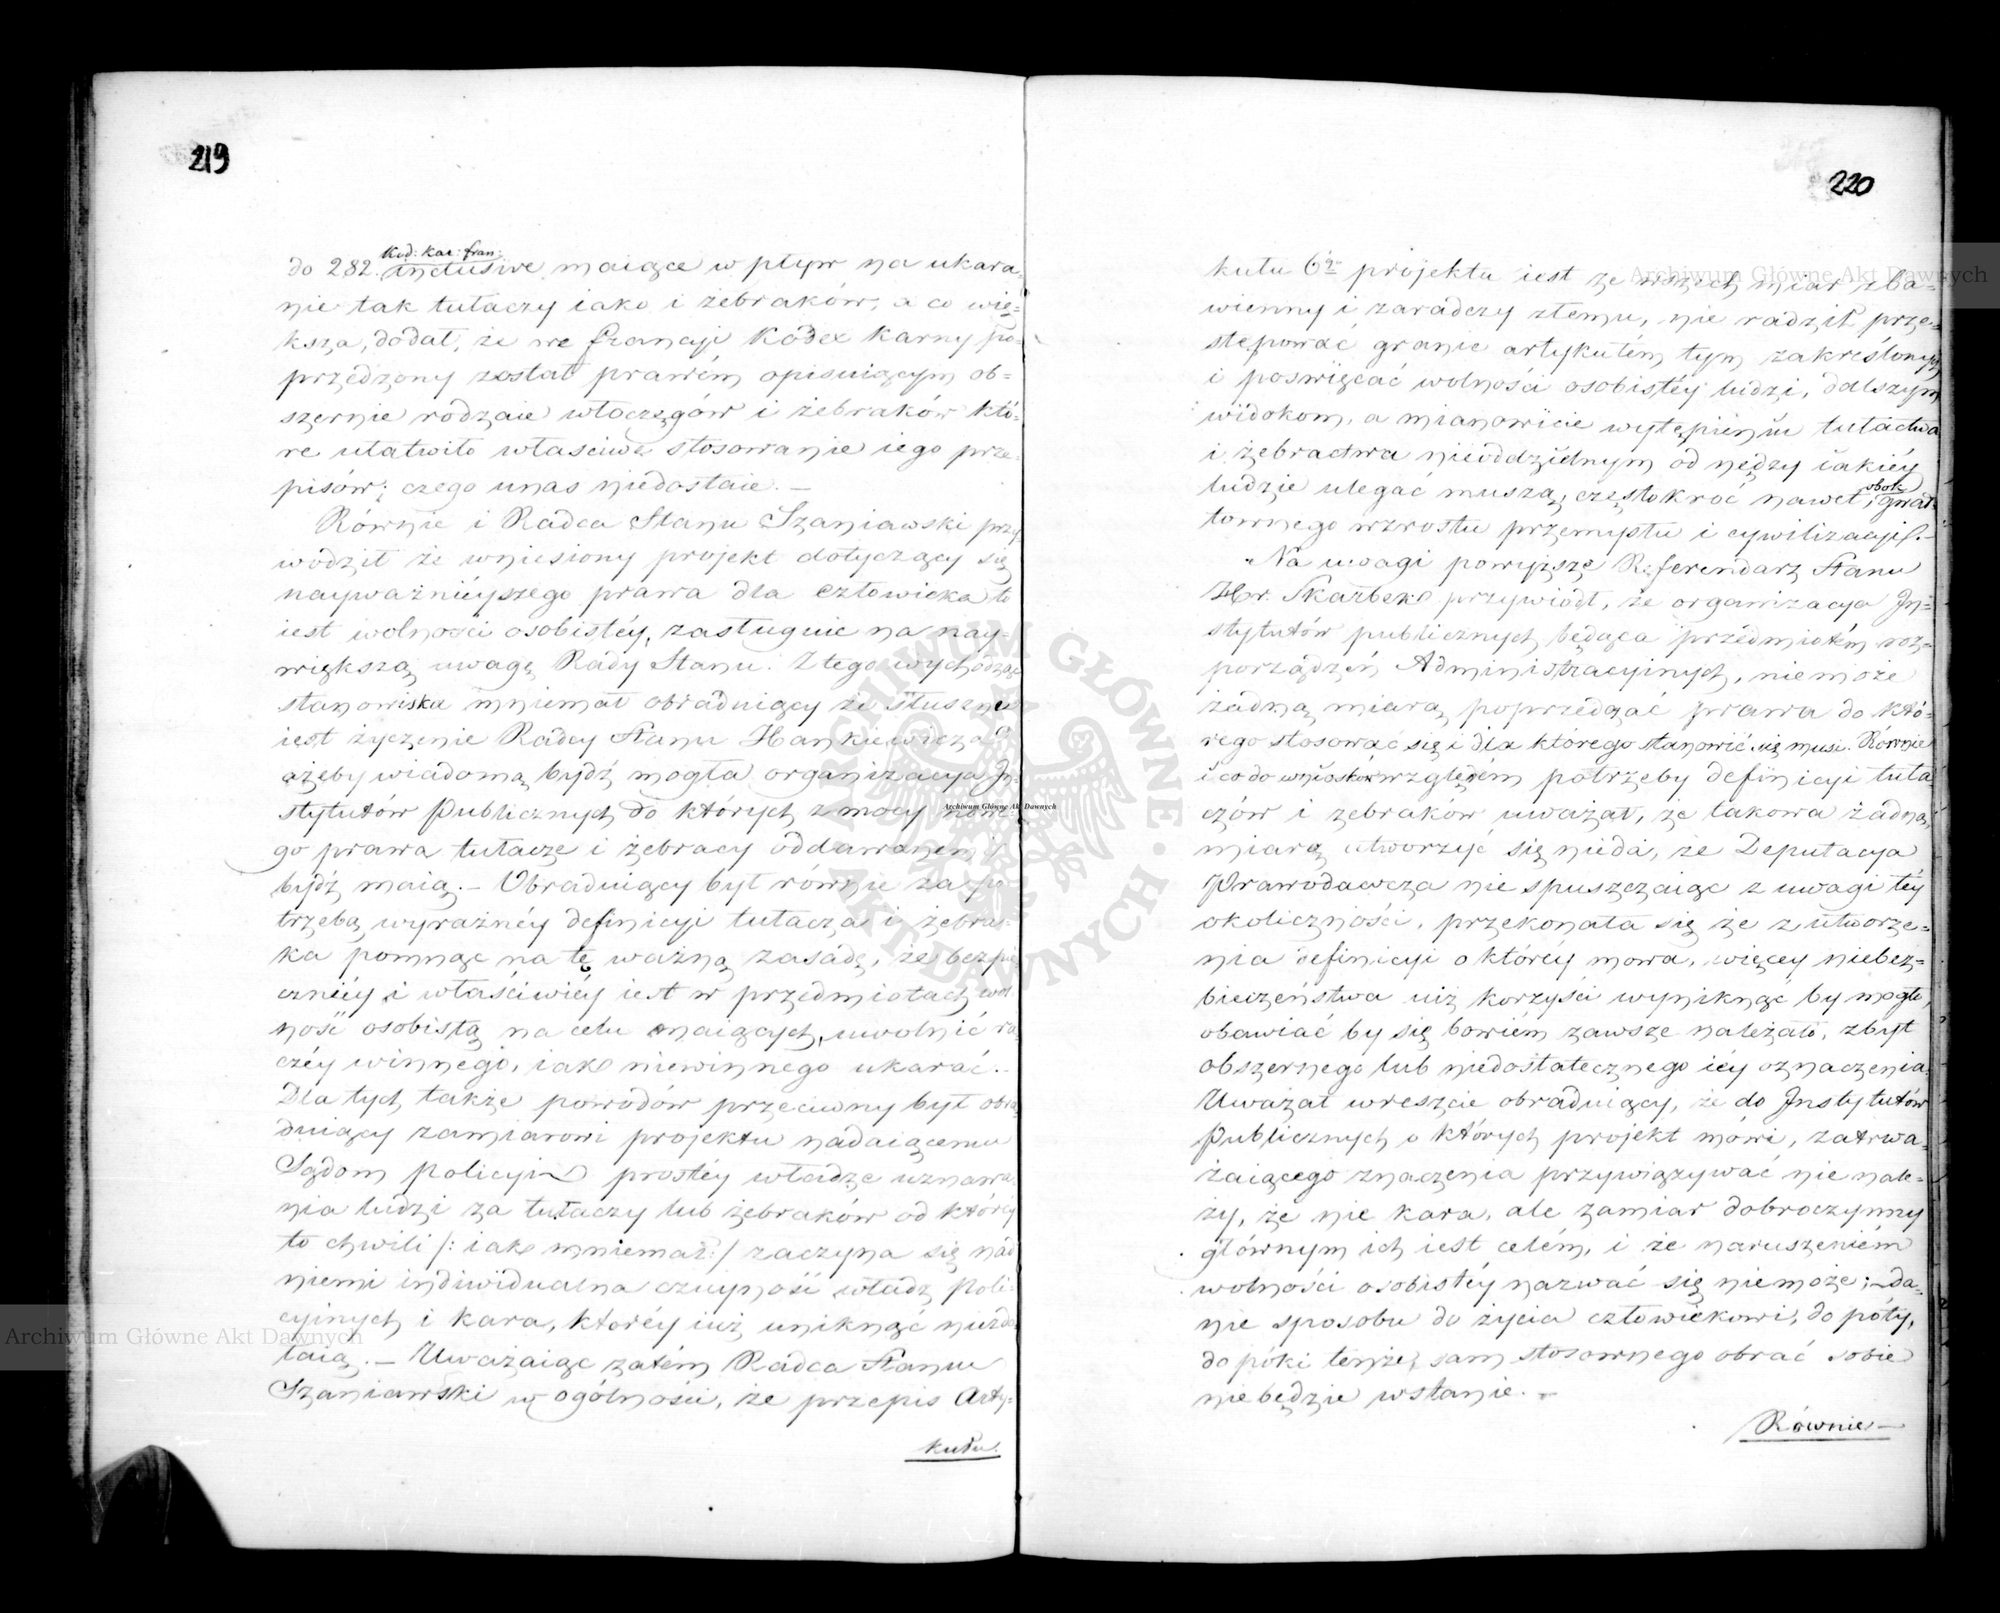 219
Kod: Kar: fran:
do 282. inclusive maiące w pływ na ukara-
nie tak tułaczy iako i żebraków, a co wię-
ksza, dodał, że we francji Kodex Karny po-
przedzony został prawém opisuiącym ob-
szernie rodzaie włoczęgów i żebraków któ-
re ułatwiło właściwe stosowanie iego prze-
pisów; czego unas niedostaie. —
Równie i Radca Stanu Szaniawski przy
wodził że wniesiony projekt dotyczący się
nayważnieyszego prawa dla człowieka to
iest wolności osobistéy, zasługuie na nay-
większą uwagę Rady Stanu. Z tego wychodząc
stanowiska mniemał obraduiący że słuszne
iest życzenie Radcy Stanu Hankiewicza
ażeby wiadomą bydź mogła organizacya In-
stytutów Publicznych do których z mocy nowe-
go prawa tułacze i żebracy oddawanemi
bydź maią. — Obraduiący był równie za po-
trzebą wyraźnéy definicyi tułacza i żebra-
ka pomnąc na tę ważną zasadę, że bezpie
cznièy i właściwiéy iest w przedmiotach wol
ność osobistą na celu maiących, uwolnić ra
czéy winnego, iak niewinnego ukarać. -
Dla tych także powodów przeciwny był obra
duiący zamiarowi projektu nadaiącemu
Sądom policyi prostéy władzę uznawa
nia ludzi za tułaczy lub żebraków od któréy
to chwili /: iak mniemał :/ zaczyna się nad
niemi indiwidualna czuyność władz Poli-
cyinych i kara, któréy iuż uniknąć niezdo
łaią. — Uważaiąc zatém Radca Stanu
Szaniawski w ogólności, że przepis Arty-
kułu.
220
kułu 6go projektu iest ze wszech miar zba-
wienny i zaradczy złemu, nie radził prze-
stępować granic artykułém tym zakreślonych
i poswięcać wolności osobistéy ludzi, dalszym
widokom, a mianowicie wytępieniu tułactwa
i żebractwa nieoddzielnym od nędzy iakiéy
ludzie ulegać muszą, częstokroć nawet obok gwał-
townego wzrostu przemysłu i cywilizacji. —
Na uwagi powyższe Referendarz Stanu
Hr. Skarbek przywiódł, że organizacya In-
stytutów publicznych będąca przedmiotém roz-
porządzeń Administracyinych, niemoże
żadną miarą poprzedzać prawa do któ-
rego stosować się i dla którego stanowić się musi. Równie
i co do wniosków względém potrzeby definicyi tuła
czów i żebraków uważał, że takowa żadną
miarą utworzyć się nieda, że Deputacya
Prawodawcza nie spuszczaiąc z uwagi téy
okoliczności, przekonała się że z utworze-
nia definicyi o któréy mowa, więcey niebez-
bieczeństwa niż korzyści wyniknąć by mogło,
obawiać by się bowiém zawsze należało, zbyt
obszernego lub niedostatecznego iéy oznaczenia.
Uważał wreszcie obraduiący, że do Instytutów
Publicznych o których projekt mówi, zatrwa-
żaiącego znaczenia przywiązywać nie nale-
ży, że nie kara, ale zamiar dobroczynny
głównym ich iest celém, i że naruszeniém
wolności osobistéy nazwać się niemoże; — da-
nie sposobu do życia człowiekowi, do póty,
do póki tenże sam stosownego obrać sobie
nie będzie wstanie. —
Równie —
Archiwum Główne Akt Dawnych
Archiwum Główne Akt Dawnych
Archiwum Główne Akt Dawnych
ARCHIWUM GŁÓWNE · AKT DAWNYCH ·